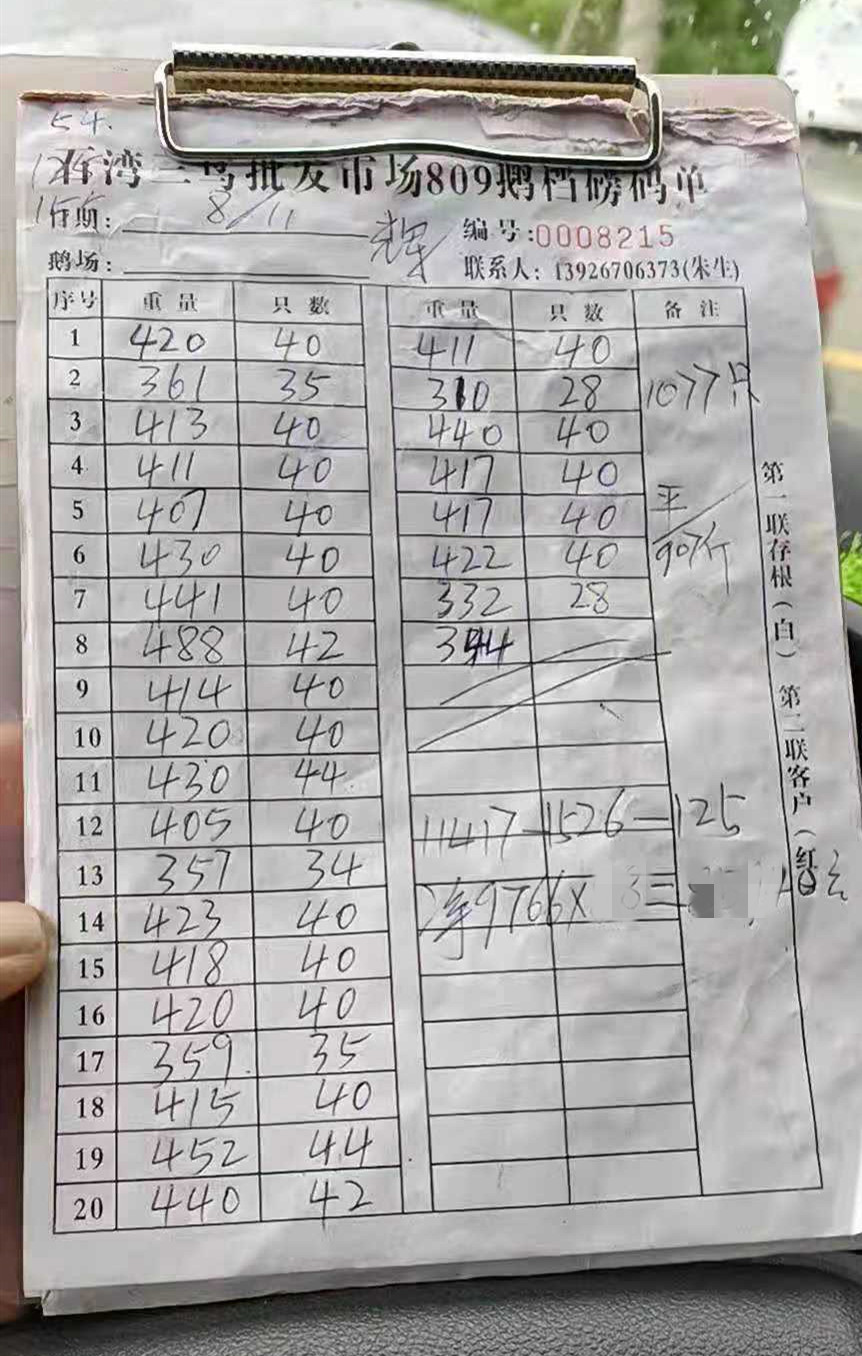 54.
石湾三鸟批发市场809鹅档磅码单
日期: 8/11
编号:0008215
鹅场:
联系人: 13926706373(朱生)
序号 重量 只数 重量 只数 备注
1 420 40 411 40
2 361 35 310 28 1077只
3 413 40 440 40
4 411 40 417 40
5 407 40 417 40 平
6 430 40 422 40 907斤
7 441 40 332 28
8 488 42 344
9 414 40
10 420 40
11 430 44
12 405 40 11417-1526-125
13 357 34
14 423 40 净9766×
15 418 40
16 420 40
17 359 35
18 415 40
19 452 44
20 440 42
第一联存根(白) 第二联客户(红)